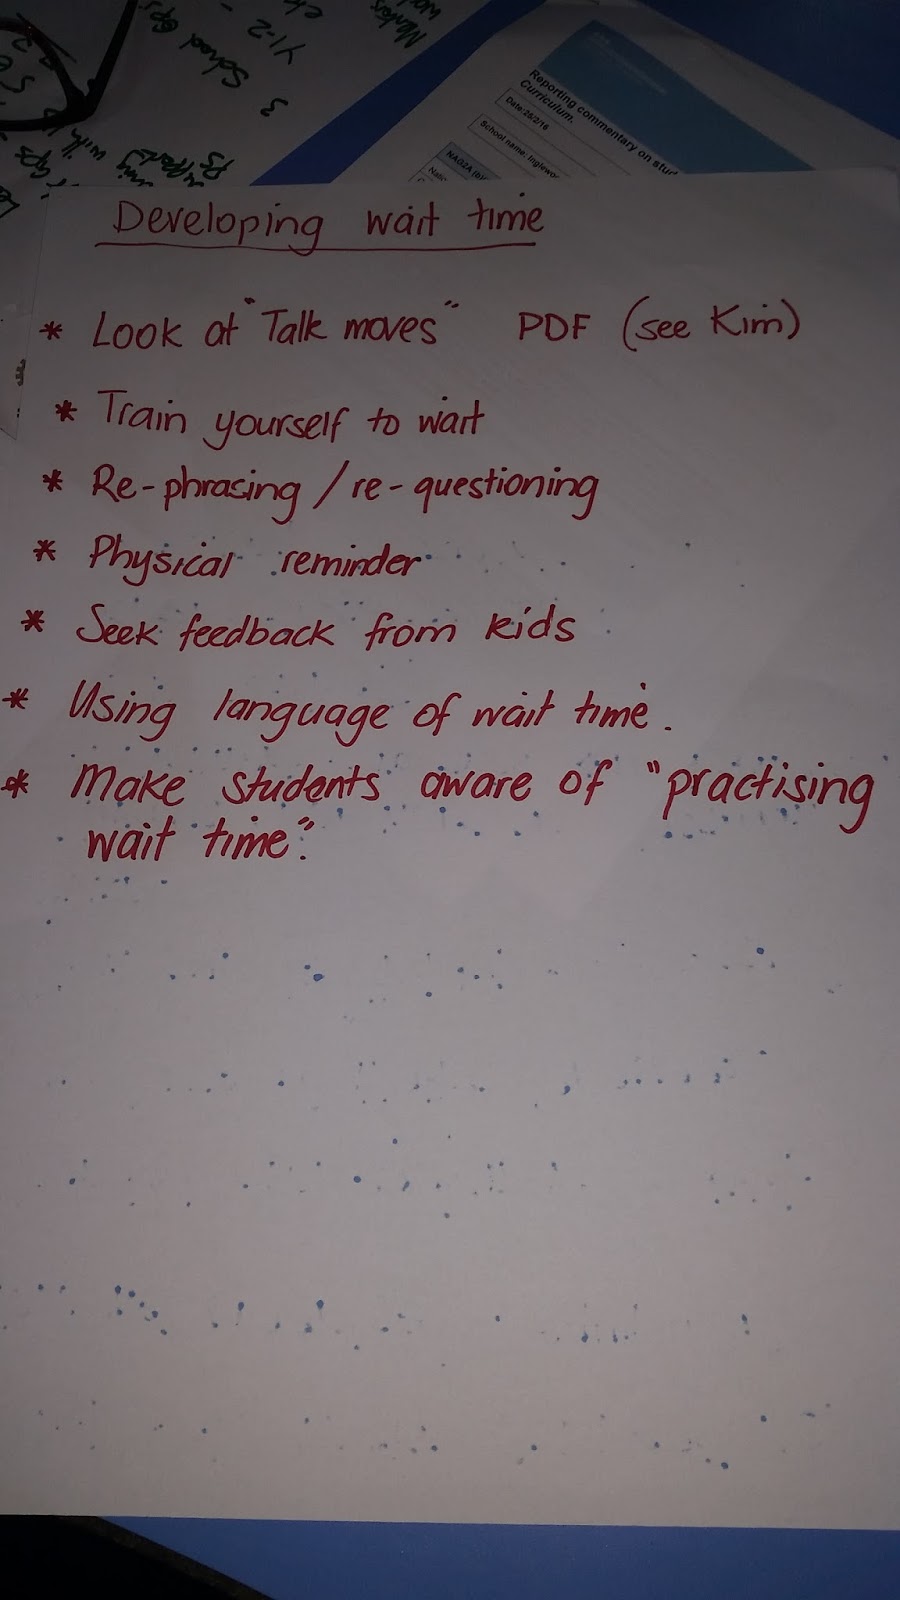 Reporting commentary on
Curriculum.
Date:25/2/16
School name:
School Gps
Y1-2
3
with
Developing wait time
* Look at "Talk moves" PDF (see Kim)
* Train yourself to wait
* Re-phrasing / re-questioning
* Physical reminder
* Seek feedback from kids
* Using language of wait time.
* Make students aware of "practising
wait time".